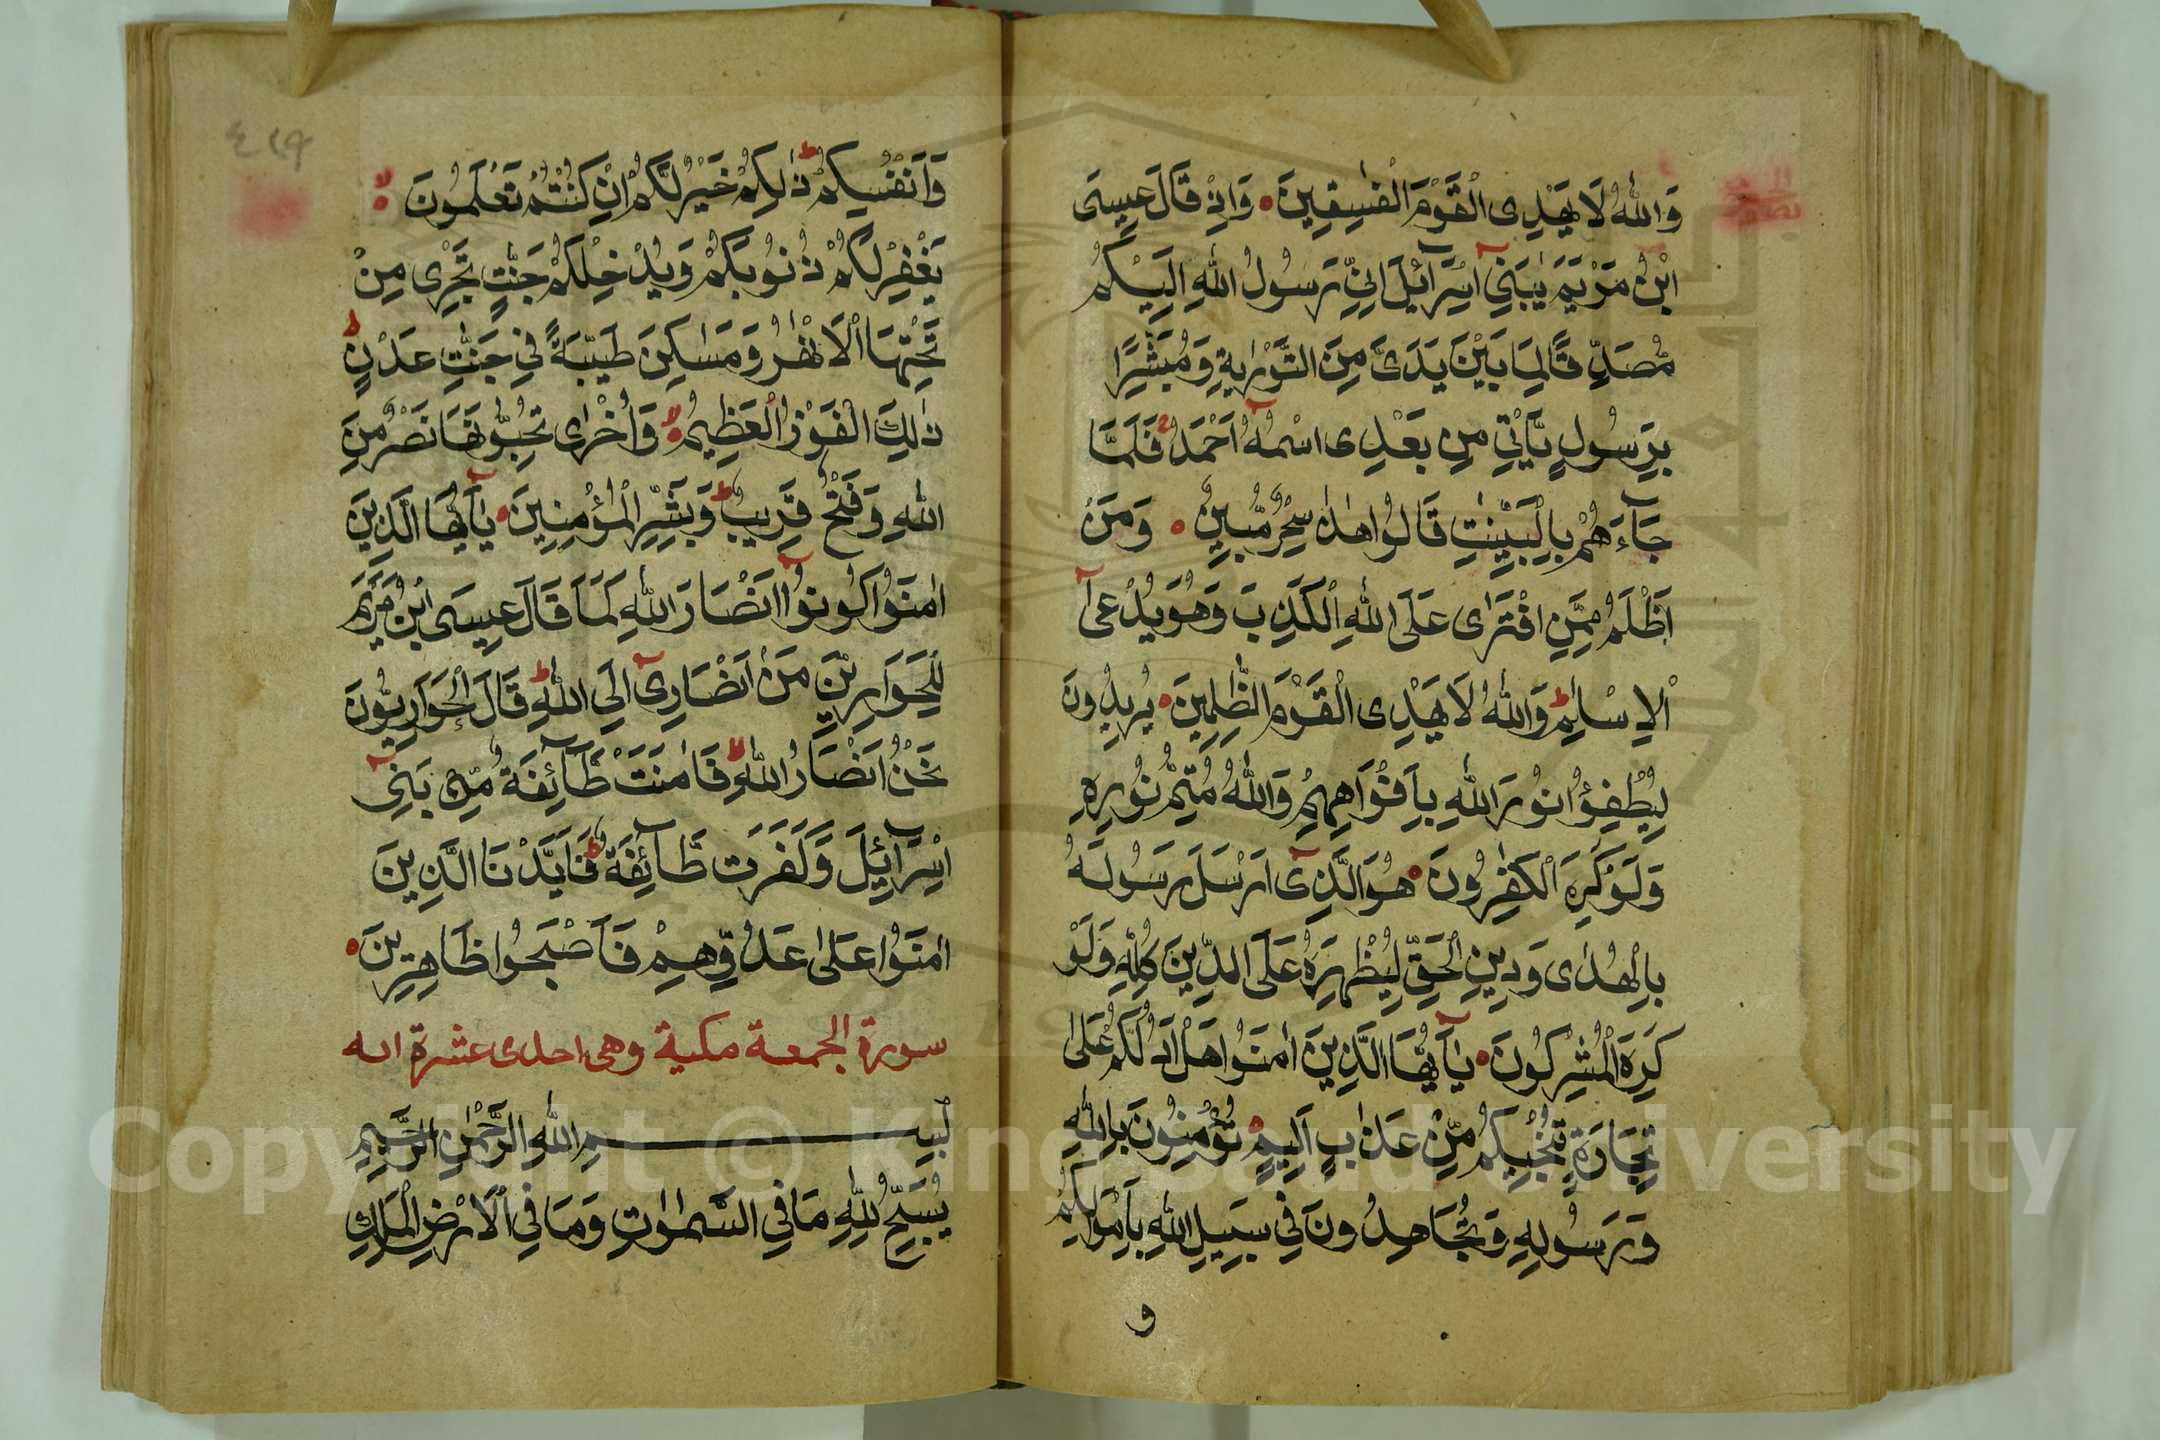 وَاللّٰهُ لَا يَهْدِى الْقَوْمَ الْفٰسِقِينَ وَاِذْ قَالَ عِيسَى
ابْنُ مَرْيَمَ يٰبَنِىٓ اِسْرَآئِيلَ اِنِّى رَسُولُ اللّٰهِ اِلَيْكُمْ
مُصَدِّقًا لِمَا بَيْنَ يَدَىَّ مِنَ التَّوْرٰيةِ وَمُبَشِّرًا
بِرَسُولٍ يَّاْتِى مِنْ بَعْدِى اسْمُهٓ اَحْمَدُ فَلَمَّا
جَآءَهُمْ بِالْبَيِّنٰتِ قَالُوا هٰذَا سِحْرٌ مُّبِينٌ وَمَنْ
اَظْلَمُ مِمَّنِ افْتَرٰى عَلَى اللّٰهِ الْكَذِبَ وَهُوَ يُدْعٰىٓ
الْاِسْلَامِ وَاللّٰهُ لَا يَهْدِى الْقَوْمَ الظّٰلِمِينَ يُرِيدُونَ
لِيُطْفِؤُا نُورَ اللّٰهِ بِاَفْوَاهِهِمْ وَاللّٰهُ مُتِمُّ نُورِهٖ
وَلَوْ كَرِهَ الْكٰفِرُونَ هُوَ الَّذِىٓ اَرْسَلَ رَسُولَهُ
بِالْهُدٰى وَدِينِ الْحَقِّ لِيُظْهِرَهُ عَلَى الدِّينِ كُلِّهٖ وَلَوْ
كَرِهَ الْمُشْرِكُونَ يٰٓاَيُّهَا الَّذِينَ اٰمَنُوا هَلْ اَدُلُّكُمْ عَلٰى
تِجَارَةٍ تُنْجِيكُمْ مِّنْ عَذَابٍ اَلِيمٍ تُؤْمِنُونَ بِاللّٰهِ
وَرَسُولِهٖ وَتُجَاهِدُونَ فِى سَبِيلِ اللّٰهِ بِاَمْوَالِكُمْ
و
٤١٩
وَاَنْفُسِكُمْ ذٰلِكُمْ خَيْرٌ لَّكُمْ اِنْ كُنْتُمْ تَعْلَمُونَ
يَغْفِرْ لَكُمْ ذُنُوبَكُمْ وَيُدْخِلْكُمْ جَنّٰتٍ تَجْرِى مِنْ
تَحْتِهَا الْاَنْهٰرُ وَمَسٰكِنَ طَيِّبَةً فِى جَنّٰتِ عَدْنٍ
ذٰلِكَ الْفَوْزُ الْعَظِيمُ وَاُخْرٰى تُحِبُّونَهَا نَصْرٌ مِّنَ
اللّٰهِ وَفَتْحٌ قَرِيبٌ وَبَشِّرِ الْمُؤْمِنِينَ يٰٓاَيُّهَا الَّذِينَ
اٰمَنُوا كُونُوٓا اَنْصَارَ اللّٰهِ كَمَا قَالَ عِيسَى ابْنُ مَرْيَمَ
لِلْحَوَارِيّٖنَ مَنْ اَنْصَارِىٓ اِلَى اللّٰهِ قَالَ الْحَوَارِيُّونَ
نَحْنُ اَنْصَارُ اللّٰهِ فَاٰمَنَتْ طَّآئِفَةٌ مِّنْ بَنِىٓ
اِسْرَآئِيلَ وَكَفَرَت طَّآئِفَةٌ فَاَيَّدْنَا الَّذِينَ
اٰمَنُوا عَلٰى عَدُوِّهِمْ فَاَصْبَحُوا ظَاهِرِينَ
سورة الجمعة مكية وهى احدى عشرة ايه
بِسْمِ اللّٰهِ الرَّحْمٰنِ الرَّحِيمِ
يُسَبِّحُ لِلّٰهِ مَا فِى السَّمٰوٰتِ وَمَا فِى الْاَرْضِ الْمَلِكِ
Copyright © King Saud University